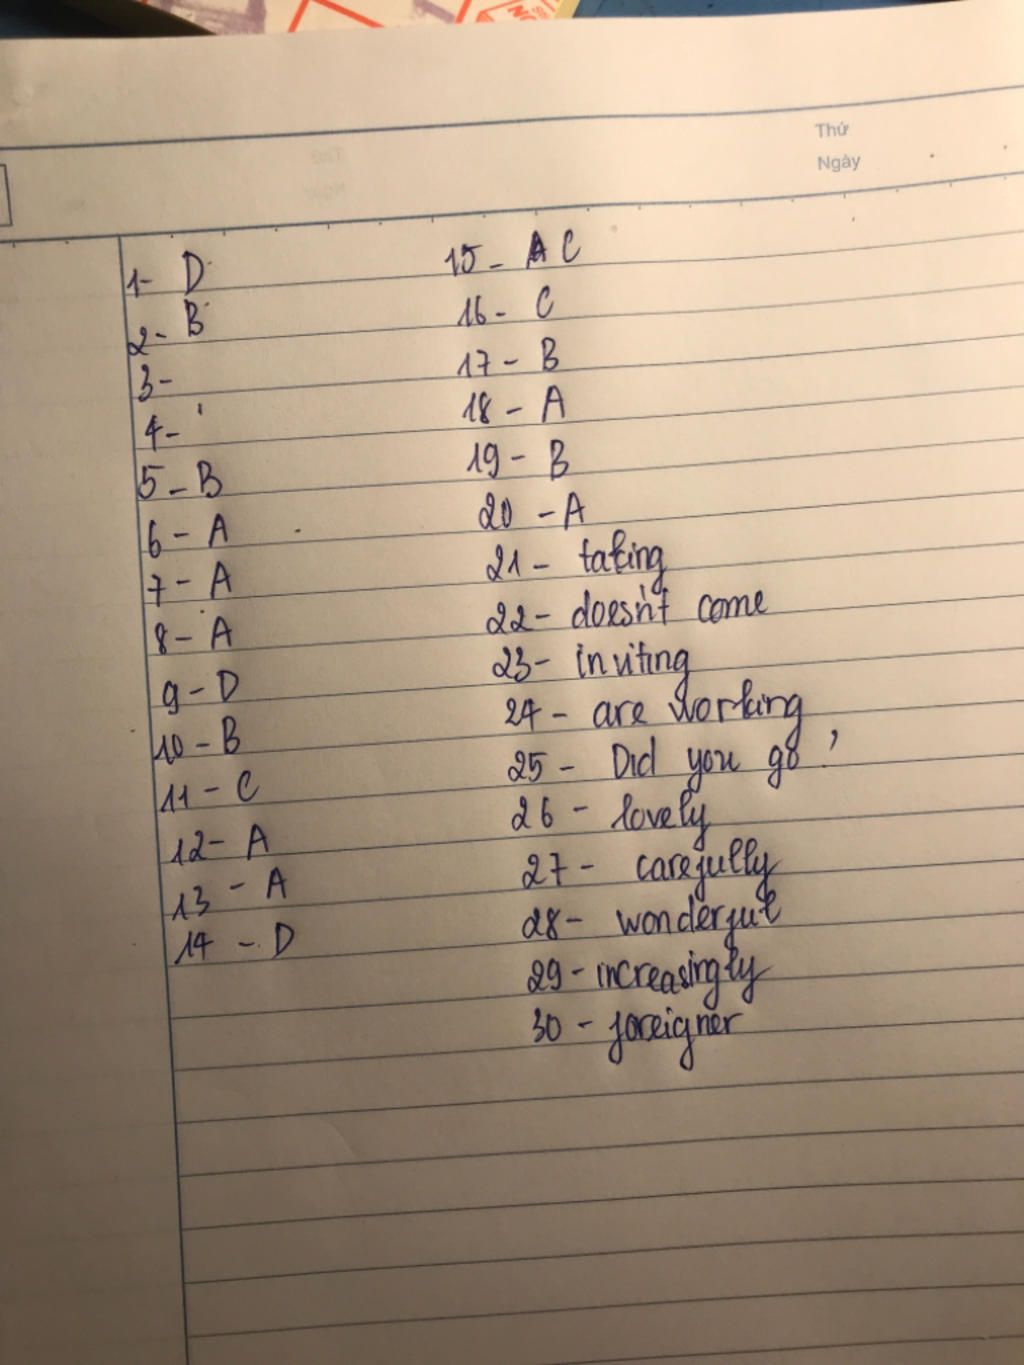 Thứ
Ngày
1- D
2- B
3-
4-
5- B
6- A
7- A
8- A
9- D
10- B
11- C
12- A
13- A
14- D
15- C
16- C
17- B
18- A
19- B
20- A
21- taking
22- doesn't come
23- inviting
24- are working
25- Did you go?
26- lovely
27- carefully
28- wonderful
29- increasingly
30- foreigner